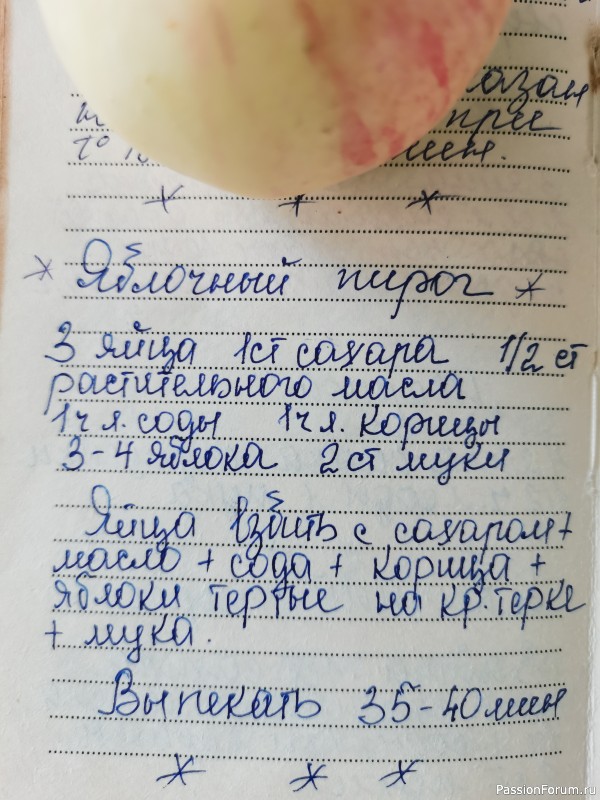 при
мин.
* Яблочный пирог *
3 яйца 1ст сахара 1/2 ст
растительного масла
1ч л. соды 1ч л. корицы
3-4 яблока 2 ст муки
Яйца взбить с сахаром +
масло + сода + корица +
яблоки тертые на кр. терке
+ мука.
Выпекать 35-40 мин
PassionForum.ru